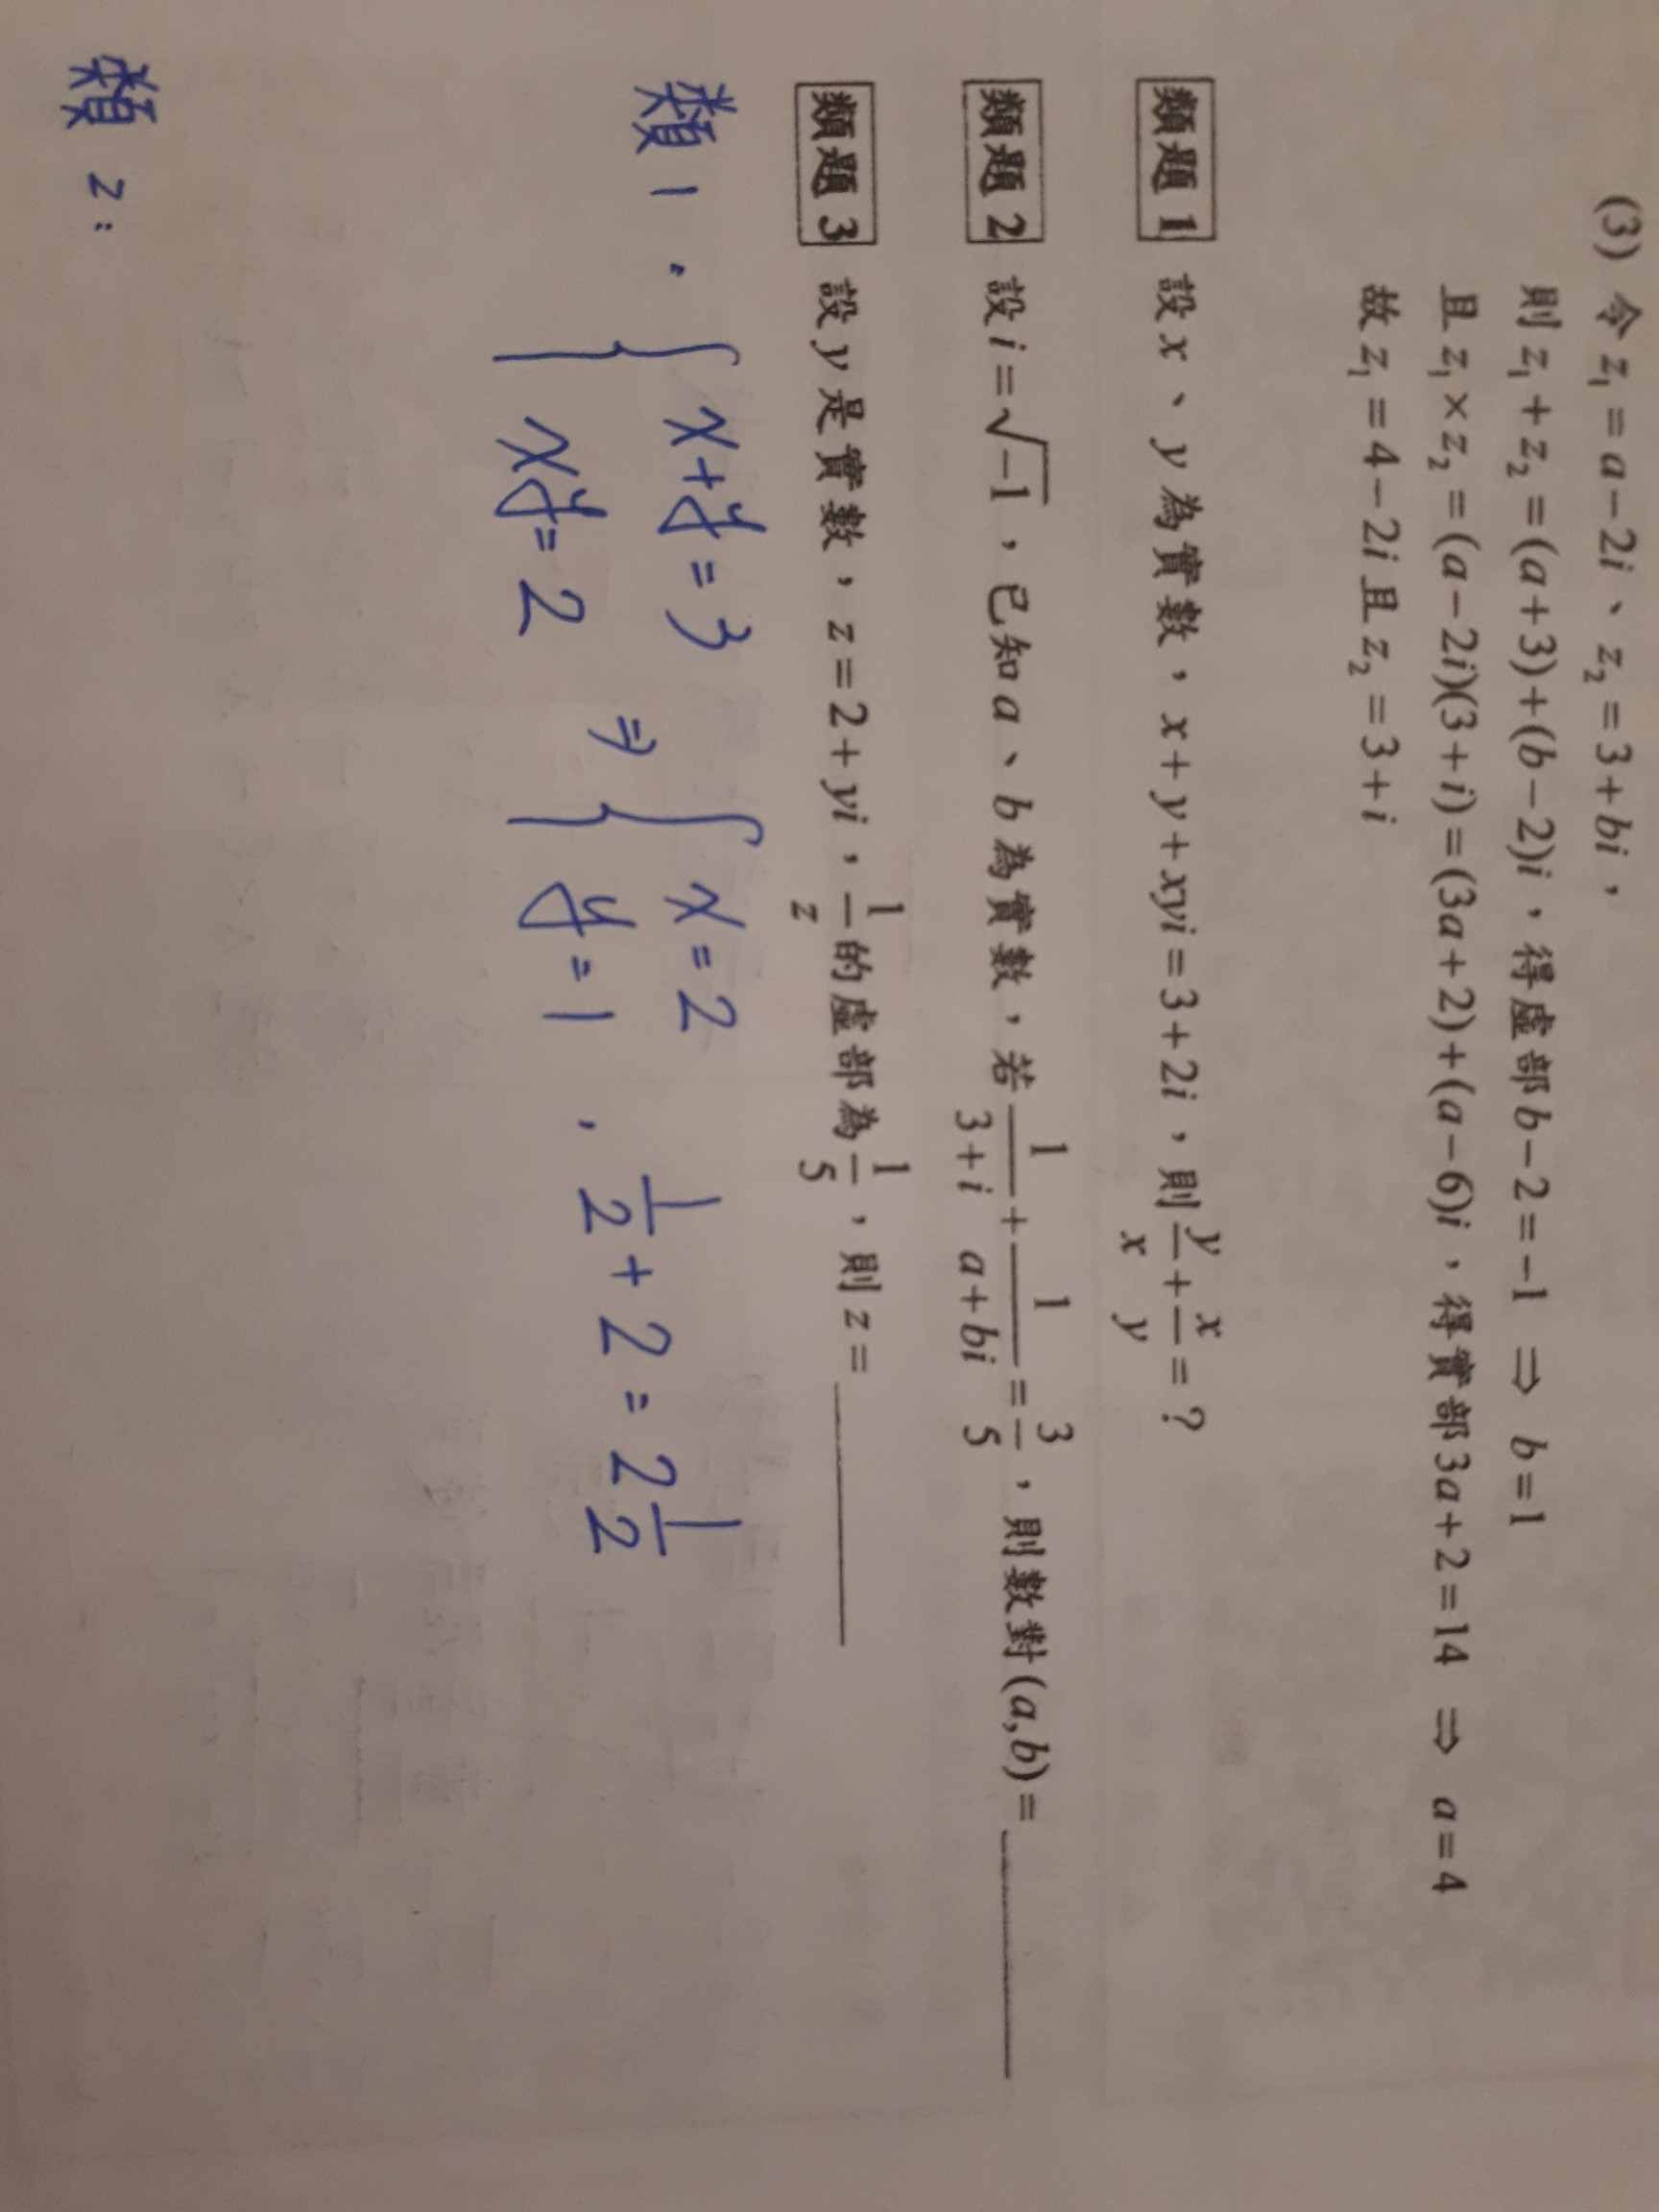 (3) 令 z₁ = a − 2i、z₂ = 3 + bi，
則 z₁ + z₂ = (a + 3) + (b − 2)i，得虛部 b − 2 = −1 ⇒ b = 1
且 z₁ × z₂ = (a − 2i)(3 + i) = (3a + 2) + (a − 6)i，得實部 3a + 2 = 14 ⇒ a = 4
故 z₁ = 4 − 2i 且 z₂ = 3 + i
類題 1 設 x、y 為實數，x + y + xyi = 3 + 2i，則 y/x + x/y = ?
類題 2 設 i = √−1，已知 a、b 為實數，若 1/(3+i) + 1/(a+bi) = 3/5，則數對 (a,b) = ______
類題 3 設 y 是實數，z = 2 + yi，1/z 的虛部為 1/5，則 z = ______
類 1. { x + y = 3 ⇒ { x = 2
xy = 2 y = 1 , 1/2 + 2 = 2 1/2
類 2: